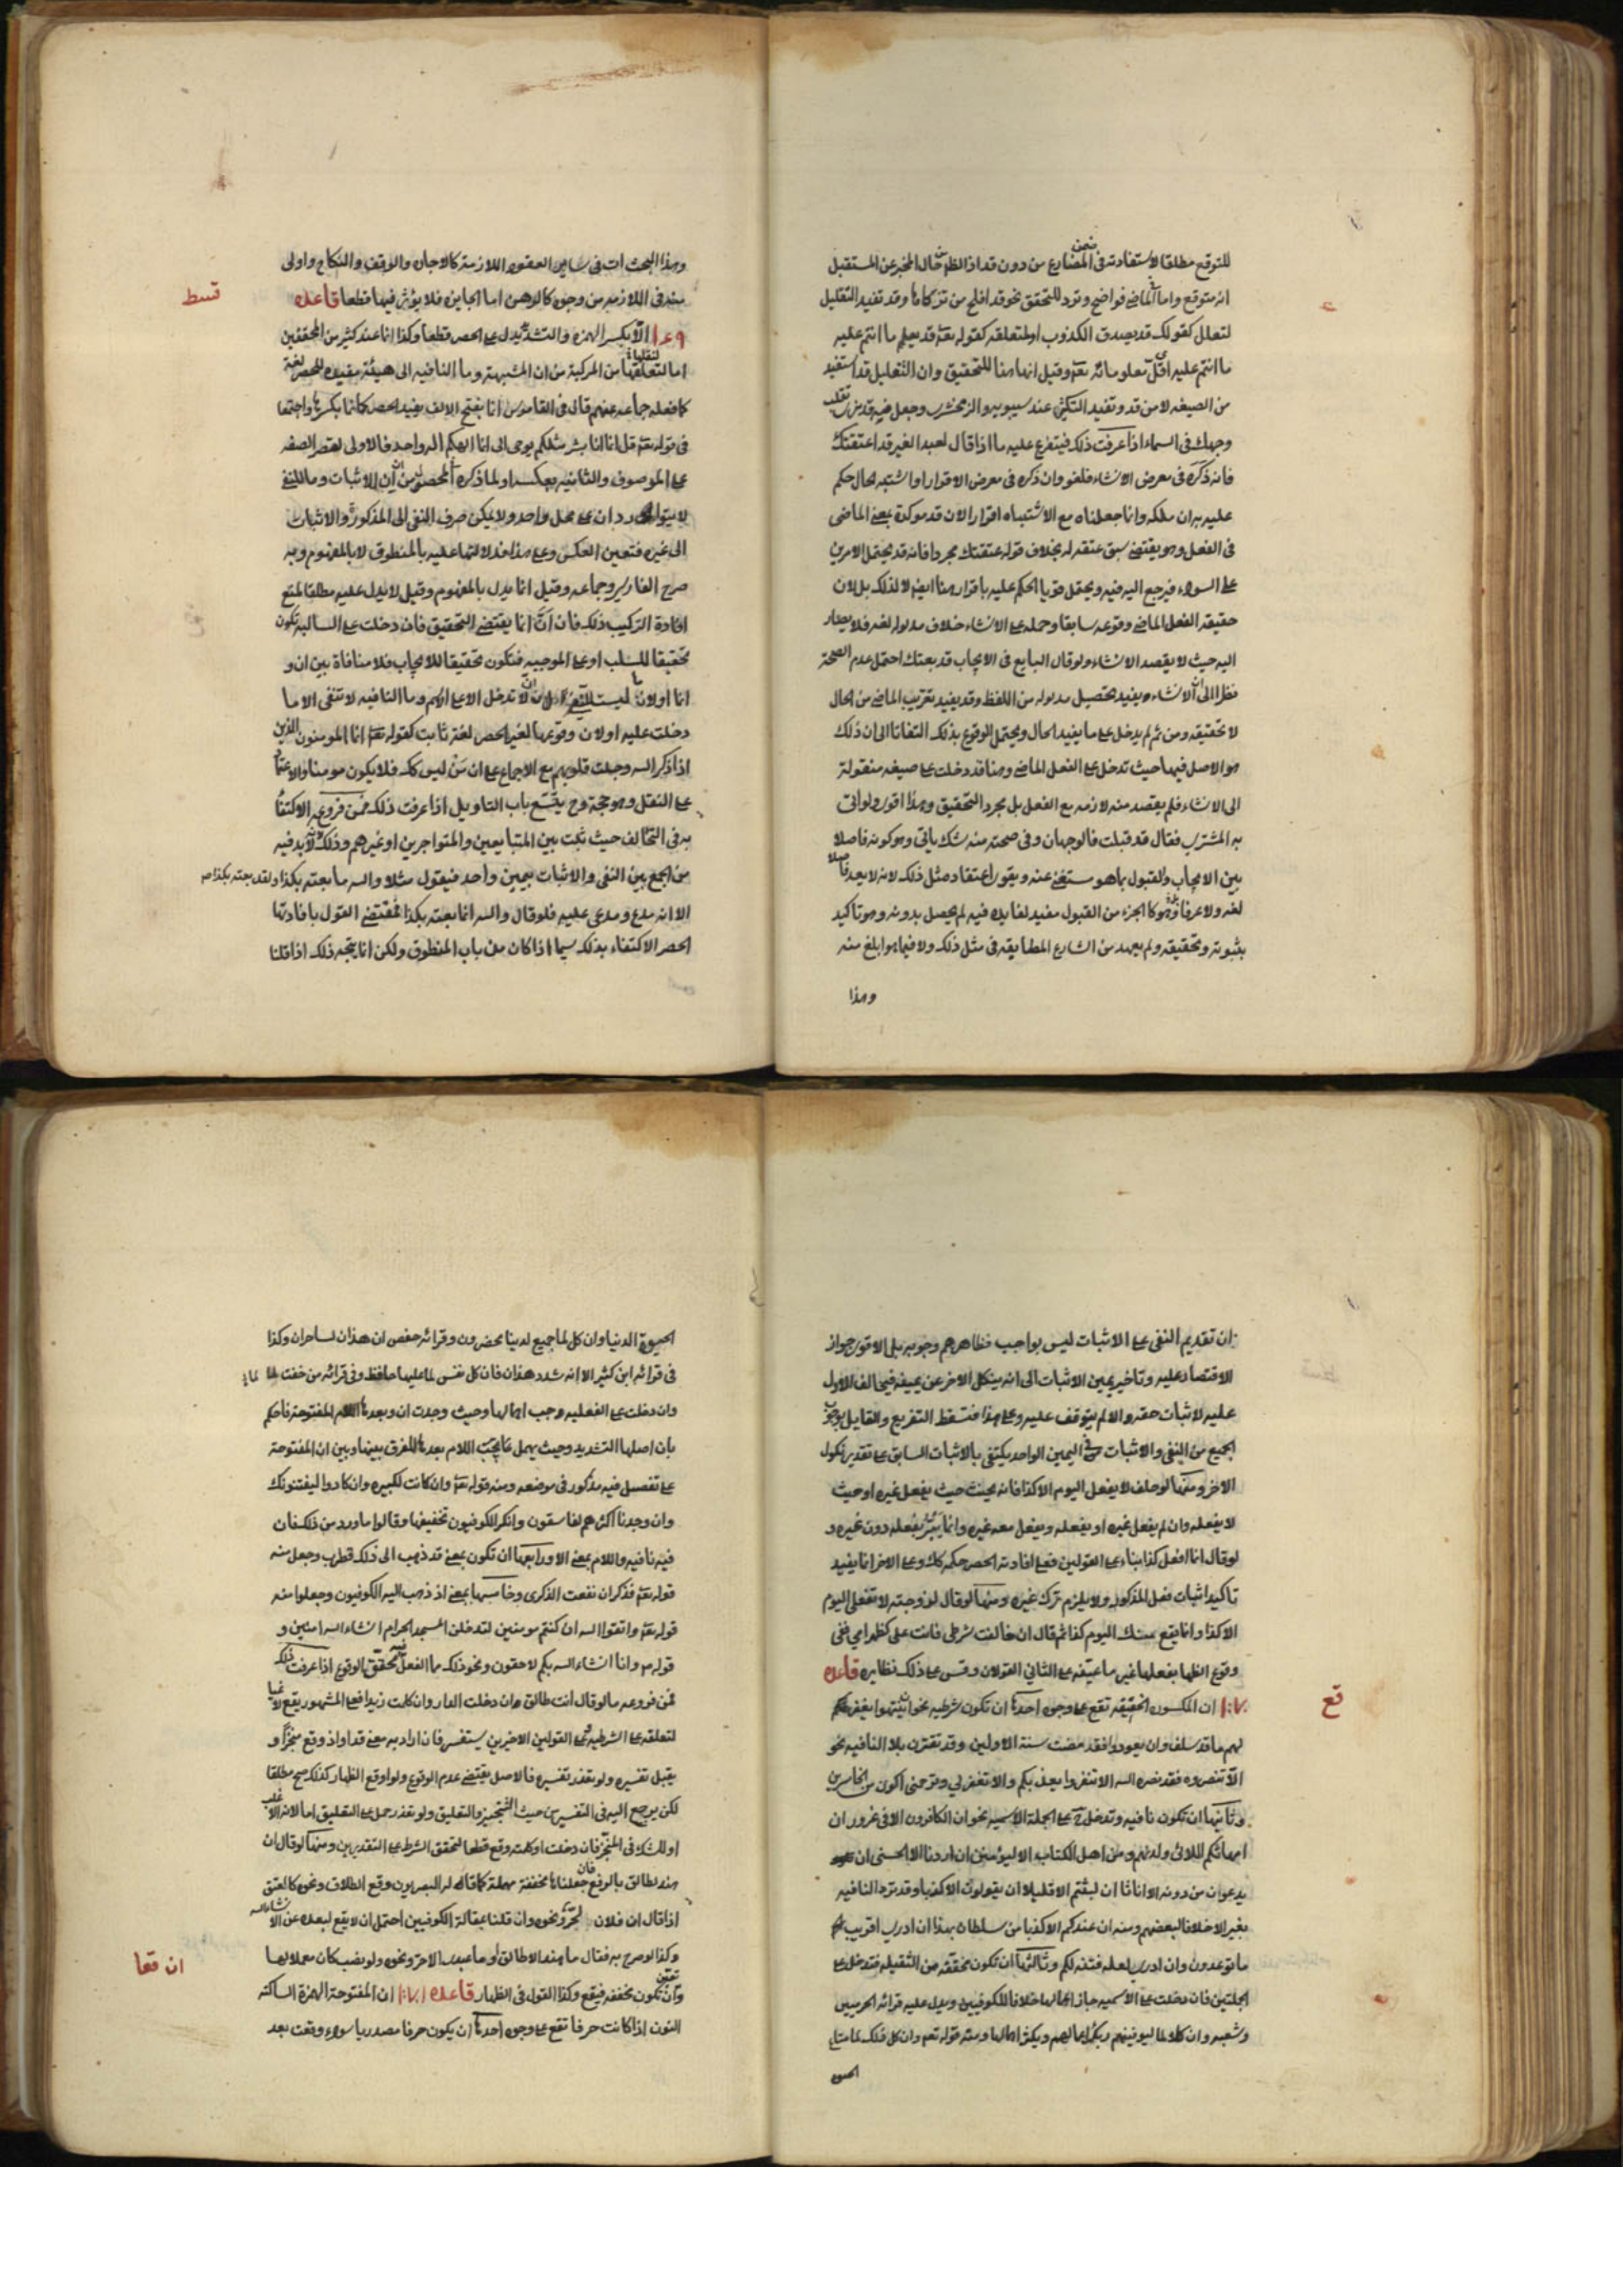 للتوقع مطلقا لاستفادته في المضارع من دون قد اذ الظاهر من حال المخبر عن المستقبل
انه متوقع واما في الماضي فواضح وترد للتحقيق نحو قد افلح من تزكى وقد تفيد التقليل
كقولك قد يصدق الكذوب او لمتعلقه كقوله تعه قد يعلم ما انتم عليه
ما انتم عليه اقل معلوماته تعه وقيل انها هنا للتحقيق وان التقليل قد استفيد
من الصيغه لا من قد وتفيد التكثير عند سيبويه والزمخشري وجعل فيه قد نرى تقلب
وجهك في السماء اذا عرفت ذلك فيتفرع عليه ما اذا قال لعبد الغير قد اعتقتك
فانه ذكره في معرض الانشاء فلغو وان ذكره في معرض الاقرار او اشتبه الحال حكم
عليه به ان ملكه وانما جعلناه مع الاشتباه اقرارا لان قد موكدة بمعنى الماضي
في الفعل وهو يقتضي سبق عتقه له بخلاف قوله عتقتك مجردا فانه قد يحتمل الامرين
على السواء فيرجع اليه فيه ويحتمل قويا الحكم عليه باقراره هنا ايضا لا لذلك بل لان
حقيقه الفعل الماضي وقوعه سابقا وحمله على الانشاء خلاف مدلوله لغه فلا يصار
اليه حيث لا يقصد الانشاء ولو قال البايع في الايجاب قد بعتك احتمل عدم الصحة
نظرا الى ان الانشاء يفيد تحصيل مدلوله من اللفظ وقد يفيد تقريب الماضي من الحال
لا تحقيقه ومن ثم لم يدخل على ما يفيد الحال ويحتمل الوقوع بذلك التفاتا الى ان ذلك
هو الاصل فيها حيث تدخل على الفعل الماضي وهنا قد دخلت على صيغه منقولة
الى الانشاء فلم يقصد منه لازمه مع الفعل بل مجرد التحقيق وهذا اقوى ولو اتى
به المشتري فقال قد قبلت فالوجهان وفي صحته منه شك ياتي وهو كونه فاصلا
بين الايجاب والقبول بما هو مستغنى عنه ويقوى اعتقاد مثل ذلك لانه لا يعد فاصلا
لغه ولا عرفا وهو كالجزء من القبول مفيد لفايده فيه لم يحصل بدونه وهو تاكيد
بثبوته وتحقيقه ولم يعهد من الشارع المطابقه في مثل ذلك ولا فيما هو ابلغ منه
وهذا
وهذا البحث ات في ساير العقود اللازمة كالاجاره والوقف والنكاح واولى
منه في اللازمه من وجه كالرهن اما الجايزه فلا يؤثر فيها قطعا قاعده
قسط
١٦٩ الا بكسر الهمزه والتشديد يدل على الحصر قطعا وكذا انما عند كثير من المحققين
اما لنقلها من المركبة من ان المشبهة وما النافيه الى هيئة مفيده للحصر لغة
كما فعله جماعه عنهم قال في القاموس انما بفتح الالف يفيد الحصر كانما بكسرها واجتمعا
في قوله تعه قل انما انا بشر مثلكم يوحى الى انما الهكم اله واحد فالاولى لقصر الصفه
على الموصوف والثانيه بعكسه او لما ذكره من ان ان للاثبات وما للنفي
لا يتواردان على محل واحد ولا يمكن صرف النفي الى المذكور والاثبات
الى غيره فتعين العكس وعلى هذا فدلالتها عليه بالمنطوق لا بالمفهوم وبه
صرح الفارسي وجماعه وقيل انما يدل بالمفهوم وقيل لا يدل عليه مطلقا لمنع
افادة التركيب ذلك فان ان انما يقتضي التحقيق فان دخلت على السالبه تكون
تحقيقا للسلب او على الموجبه فتكون تحقيقا للايجاب فلا منافاة بين ان و
انما اولان ما ليست للنفي لان ان لا تدخل الا على الاسم وما النافيه لا تنفى الا ما
دخلت عليه اولان وقوعها لغير الحصر لغة ثابت كقوله تعه انما المومنون الذين
اذا ذكر الله وجلت قلوبهم مع الاجماع على ان من ليس كك فلا يكون مومنا والاعتماد
على النقل وهو حجة وح يقتح باب التاويل اذا عرفت ذلك فمن فروعه الاكتفاء
به في التحالف حيث ثبت بين المتبايعين والمتواجرين او غيرهم وذلك لانه لا بد فيه
من الجمع بين النفي والاثبات بيمين واحد فيقول مثلا والله ما بعته بكذا ولقد بعته بكذا
الا انه مدع ومدعى عليه فلو قال والله انما بعته بكذا فمقتضى القول بافادتها
الحصر الاكتفاء بذلك سيما اذا كان من باب المنطوق ولكن انما يتجه ذلك اذا قلنا
ان تقديم النفي على الاثبات ليس بواجب فظاهرهم وجوبه بل الاقوى جواز
الاقتصار عليه وتاخير يمين الاثبات الى انه ينكل الاخر عن يمينه فيحالف للاول
عليه لاثبات حقه والا لم يتوقف عليه وعلى هذا فتسقط التفريع والقايل بوجوب
الجمع من النفي والاثبات في اليمين الواحد يكتفى بالاثبات السابق على تقدير نكول
الاخر ومنها لو حلف لا يفعل اليوم الا كذا فانه يحنث حيث يفعل غيره او حيث
لا يفعله وان لم يفعل غيره او يفعله ويفعل معه غيره وانما يبر بفعله دون غيره و
لو قال انما افعل كذا بناء على القولين فعلى افادته الحصر حكمه كك وعلى الاخر انما يفيد
تاكيد اثبات فعل المذكور ولا يلزم ترك غيره ومنها لو قال لزوجته لا تفعلى اليوم
الا كذا وانما يقع منك اليوم كذا ثم قال ان خالفت شرطى فانت على كظهر امي ففى
وقوع الظهار بفعلها غير ما عيّنه على الثاني القولان وقس على ذلك نظايره قاعده
قع
١٧٠ ان المكسوره الخفيفه تقع على وجوه احدها ان تكون شرطيه نحو ان ينتهوا يغفر
لهم ما قد سلف وان يعودوا فقد مضت سنة الاولين وقد تقترن بلا النافيه نحو
الا تنصروه فقد نصره الله الا تنفروا يعذبكم والا تغفر لي وترحمني اكون من الخاسرين
وثانيها ان تكون نافيه وتدخل على الجملة الاسميه نحو ان الكافرون الا في غرور ان
امهاتهم الا اللائي ولدنهم ومن اهل الكتاب الا ليؤمنن ان اردنا الا الحسنى ان
يدعون من دونه الا اناثا ان لبثتم الا قليلا ان يقولون الا كذبا وقد ترد النافيه
بغير الا خلافا لبعضهم ومنه ان عندكم من سلطان بهذا ان ادري اقريب
ما توعدون وان ادري لعله فتنه لكم وثالثها ان تكون مخففه من الثقيله فتدخل على
الجملتين فان دخلت على الاسميه جاز اعمالها خلافا للكوفيين ويدل عليه قرائه الحرميين
وشعبه وان كلا لما ليوفينهم ربك اعمالهم ويكثر اهمالها ومنه قوله تعه وان كل ذلك لما متاع
الحيوة
الحيوة الدنيا وان كل لما جميع لدينا محضرون وقرائه حفص ان هذان لساحران وكذا
في قرائه ابن كثير الا انه شدد هذان فان كل نفس لما عليها حافظ وفي قرائه من خفت لما
وان دخلت على الفعليه وجب اهمالها وحيث وجدت ان وبعدها اللام المفتوحة فاحكم
بان اصلها التشديد وحيث يهمل فيجب اللام بعدها للفرق بينها وبين ان المفتوحة
على تفصيل فيه مذكور في موضعه ومنه قوله تعه وان كانت لكبيره وان كادوا ليفتنونك
وان وجدنا اكثرهم لفاسقون وانكر الكوفيون تخفيفها وقالوا ما ورد من ذلك فان
فيه نافيه واللام بمعنى الا ورابعها ان تكون بمعنى قد ذهب الى ذلك قطرب وجعل منه
قوله تعه فذكر ان نفعت الذكرى وخامسها بمعنى اذ ذهب اليه الكوفيون وجعلوا منه
قوله تعه واتقوا الله ان كنتم مومنين لتدخلن المسجد الحرام ان شاء الله امنين و
قوله م وانا ان شاء الله بكم لاحقون ونحو ذلك مما الفعل فيه محقق الوقوع اذا عرفت ذلك
فمن فروعه ما لو قال انت طالق ان دخلت الدار وان كلت زيدا فعلى المشهور يقع لاغيا
لتعلقه على الشرطيه وعلى القولين الاخيرين يستفسر فان اراد به معنى قد او اذ وقع منجزا و
يقبل تفسيره ولو تعذر تفسيره فالاصل يقتضي عدم الوقوع ولو اوقع الظهار كذلك صح مطلقا
لكن يرجع اليه في التفسير من حيث التنجيز والتعليق ولو تعذر حمل على التعليق اما لانه الاغلب
او للشك في المنجز فان دخلت او كلمته وقع قطعا لتحقق الشرط على التقديرين ومنها لو قال ان
هند لطالق بالرفع فان جعلناها مخففة مهملة كما قاله البصريون وقع الطلاق ونحوه كالعتق
اذا قال ان فلان لحر ونحوه وان قلنا بمقالة الكوفيين احتمل ان لا يقع لبعده عن الانشاء
وكذا لو صرح به فقال ما هند الا طالق او ما عبدي الا حر ونحوه ولو نصب كان معملا لها
ان قعا
وتعين ان تكون مخففه فيقع وكذا القول في الظهار قاعده ١٧١ ان المفتوحة الهمزة الساكنه
النون اذا كانت حرفا تقع على وجوه احدها ان يكون حرفا مصدريا سواء وقعت بعد